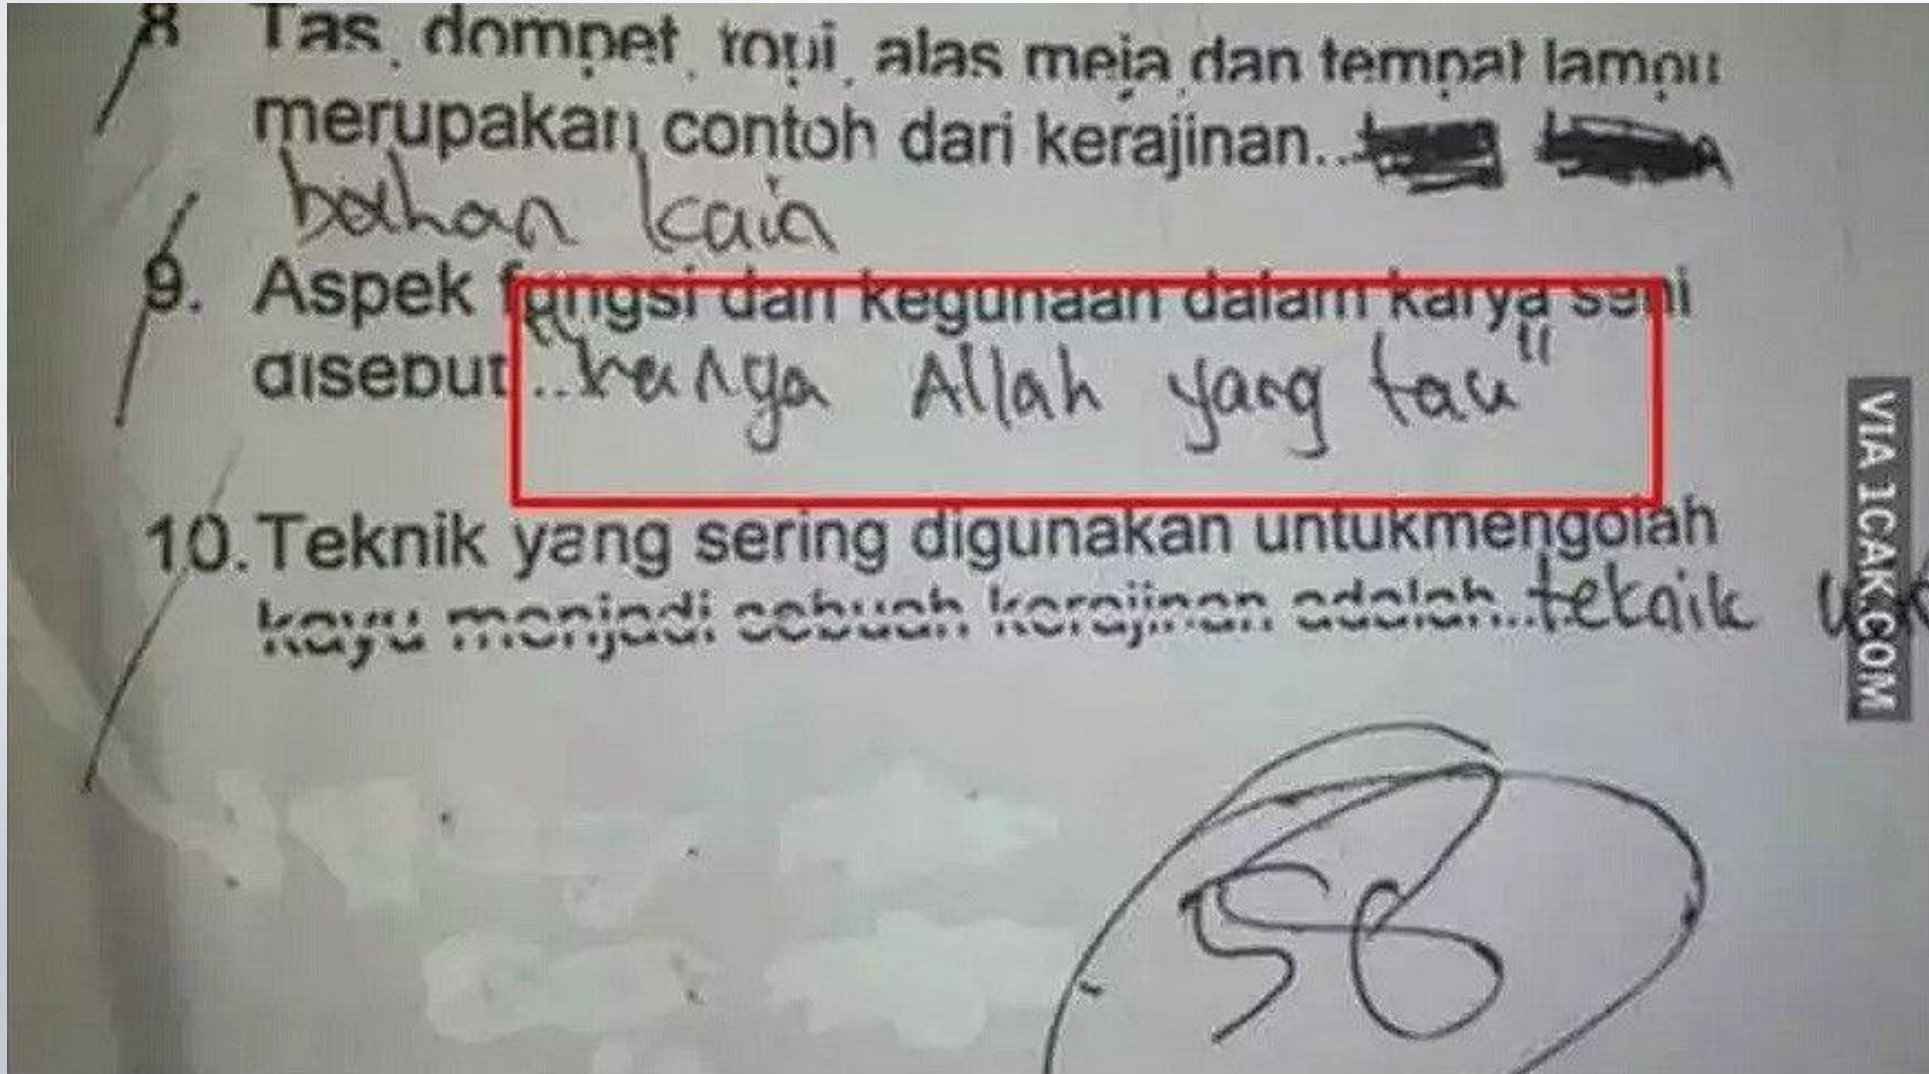 8 Tas, dompet, topi, alas meja dan tempat lampu
merupakan contoh dari kerajinan...
bahan kain
9. Aspek fungsi dan kegunaan dalam karya seni
disebut... "hanya Allah yang tau"
10. Teknik yang sering digunakan untukmengolah
kayu menjadi sebuah kerajinan adalah... teknik
58
VIA 1CAK.COM